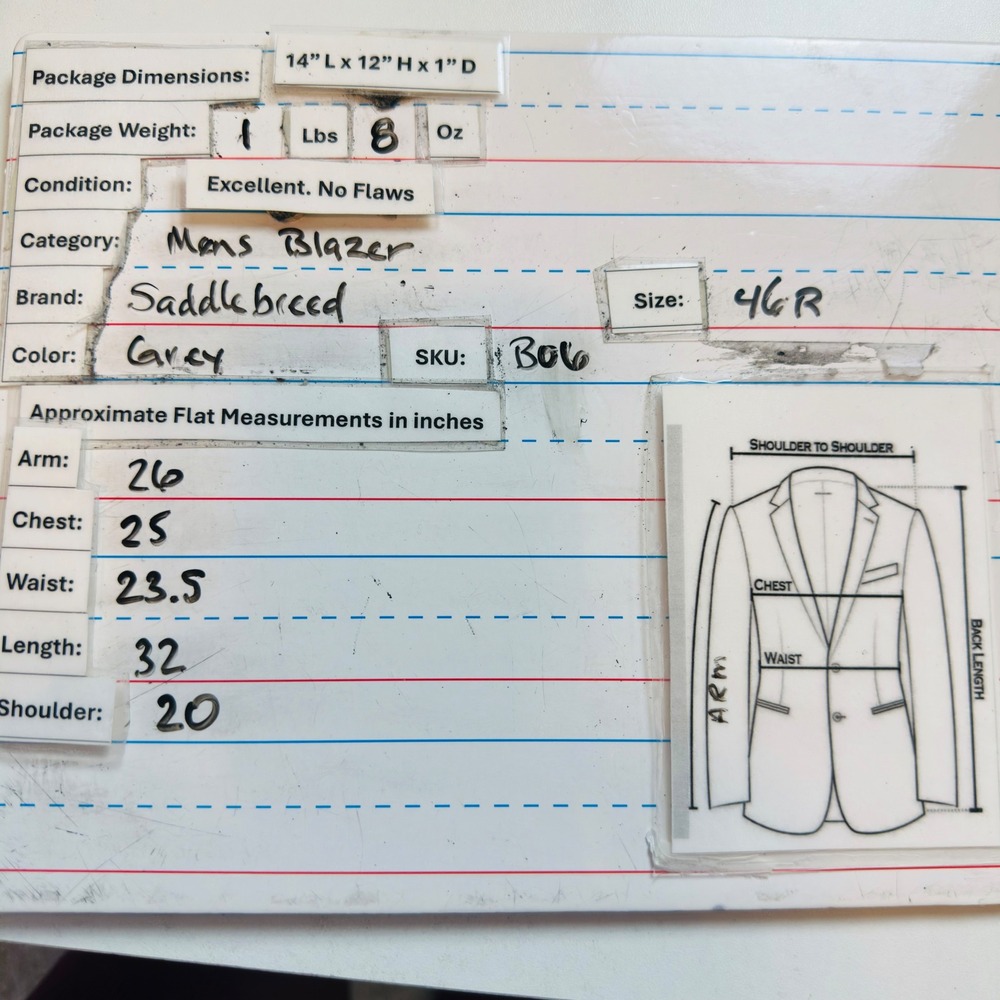 Package Dimensions: 14” L x 12” H x 1” D
Package Weight: 1 Lbs 8 Oz
Condition: Excellent. No Flaws
Category: Mens Blazer
Brand: Saddlebreed Size: 46R
Color: Grey SKU: B06
Approximate Flat Measurements in inches
Arm: 26
Chest: 25
Waist: 23.5
Length: 32
Shoulder: 20
SHOULDER TO SHOULDER
CHEST
WAIST
ARM
BACK LENGTH